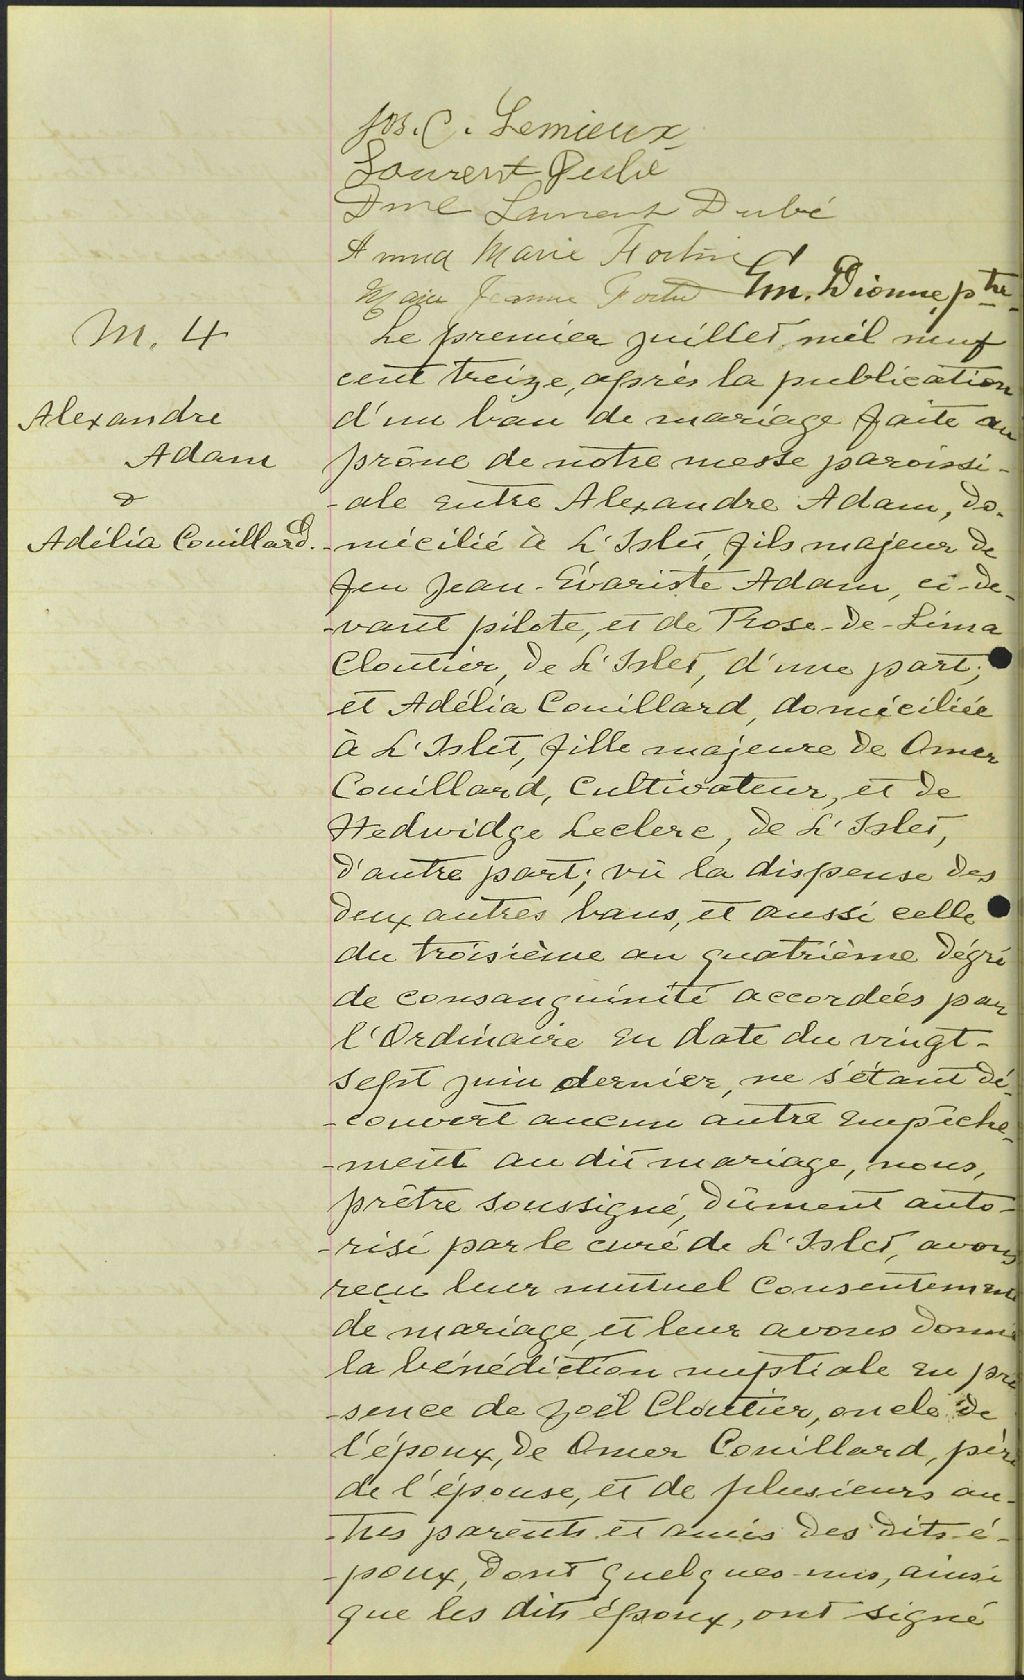 Jos. C. Lemieux
Laurent Dubé
Dme Laurent Dubé
Anna Marie Fortin
Marie Jeanne Fortin Em. Dionne, ptre.
M. 4
Alexandre
Adam
&
Adélia Couillard.
Le premier juillet mil neuf
cent treize, après la publication
d'un ban de mariage faite au
prône de notre messe paroissi-
-ale entre Alexandre Adam, do-
-micilié à L'Islet, fils majeur de
feu Jean-Évariste Adam, ci-de-
-vant pilote, et de Rose-de-Lima
Cloutier, de L'Islet, d'une part;
et Adélia Couillard, domiciliée
à L'Islet, fille majeure de Omer
Couillard, Cultivateur, et de
Hedwidge Leclerc, de L'Islet,
d'autre part; vû la dispense des
deux autres bans, et aussi celle
du troisième au quatrième dégré
de consanguinité accordées par
l'Ordinaire en date du vingt-
sept juin dernier, ne s'étant dé-
-couvert aucun autre empêche-
-ment au dit mariage, nous,
prêtre soussigné, dûment auto-
-risé par le curé de L'Islet, avons
reçu leur mutuel consentement
de mariage, et leur avons donné
la bénédiction nuptiale en pré
-sence de Joël Cloutier, oncle de
l'époux, de Omer Couillard, père
de l'épouse, et de plusieurs au-
-tres parents et amis des dits é-
-poux, dont quelques-uns, ainsi
que les dits époux, ont signé